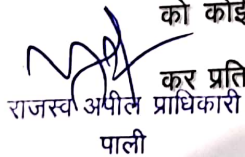 को कोई
कर प्रति
राजस्व अपील प्राधिकारी
पाली